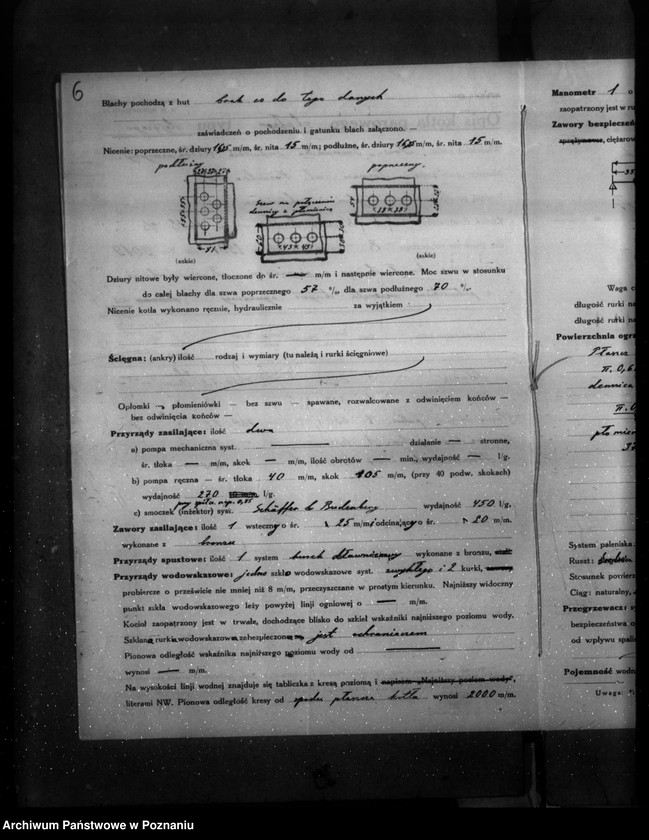 6
Blachy pochodzą z hut brak co do tego danych
zaświadczeń o pochodzeniu i gatunku blach załączono. —
Nicenie: poprzeczne, śr. dziury m/m, śr. nita 15 m/m; podłużne, śr. dziury m/m, śr. nita 15 m/m.
podłużny
poprzeczny
Szew na połączeniu
dennicy z płomienicą
(szkic)
(szkic)
Dziury nitowe były wiercone, tłoczone do śr. — m/m i następnie wiercone. Moc szwu w stosunku
do całej blachy dla szwa poprzecznego 57 %, dla szwa podłużnego 70 %.
Nicenie kotła wykonano ręcznie, hydraulicznie za wyjątkiem
Ścięgna: (ankry) ilość rodzaj i wymiary (tu należą i rurki ścięgniowe)
Opłomki — płomieniówki — bez szwu — spawane, rozwalcowane z odwinięciem końców —
bez odwinięcia końców —
Przyrządy zasilające: ilość dwa
a) pompa mechaniczna syst. — działanie — stronne,
śr. tłoka — m/m, skok — m/m, ilość obrotów — min., wydajność — l/g.
b) pompa ręczna — śr. tłoka 40 m/m, skok 105 m/m, (przy 40 podw. skokach)
wydajność 270 l/g.
c) smoczek (inżektor) syst. Schäffer & Budenberg wydajność 450 l/g.
Zawory zasilające: ilość 1 wsteczny o śr. 25 m/m i odcinający o śr. 20 m/m.
wykonane z bronzu
Przyrządy spustowe: ilość 1 system kurek dławnicowy wykonane z bronzu,
Przyrządy wodowskazowe: jedno szkło wodowskazowe syst. zwykłego i 2 kurki,
probiercze o prześwicie nie mniej niż 8 m/m, przeczyszczane w prostym kierunku. Najniższy widoczny
punkt szkła wodowskazowego leży powyżej linji ogniowej o — m/m.
Kocioł zaopatrzony jest w trwałe, dochodzące blisko do szkieł wskaźniki najniższego poziomu wody.
Szklana rurka wodowskazowa zabezpieczona jest ochraniaczem
Pionowa odległość wskaźnika najniższego poziomu wody od —
wynosi — m/m.
Na wysokości linji wodnej znajduje się tabliczka z kresą poziomą i napisem „Najniższy poziom wody",
literami NW. Pionowa odległość kresy od spodu płaszcza kotła wynosi 2000 m/m.
Manometr 1 o
zaopatrzony jest w ru
Zawory bezpieczeń
sprężynowe, ciężarow
Waga c
długość rurki na
długość rurki na
Powierzchnia ogrz
Płaszcz
π. 0,6
dennica
π. 0
płomien
System paleniska:
Ruszt:
Stosunek powierz
Ciąg: naturalny,
Przegrzewacz: sy
bezpieczeństwa o
od wpływu spalin
Pojemność wodn
Uwaga:
Archiwum Państwowe w Poznaniu